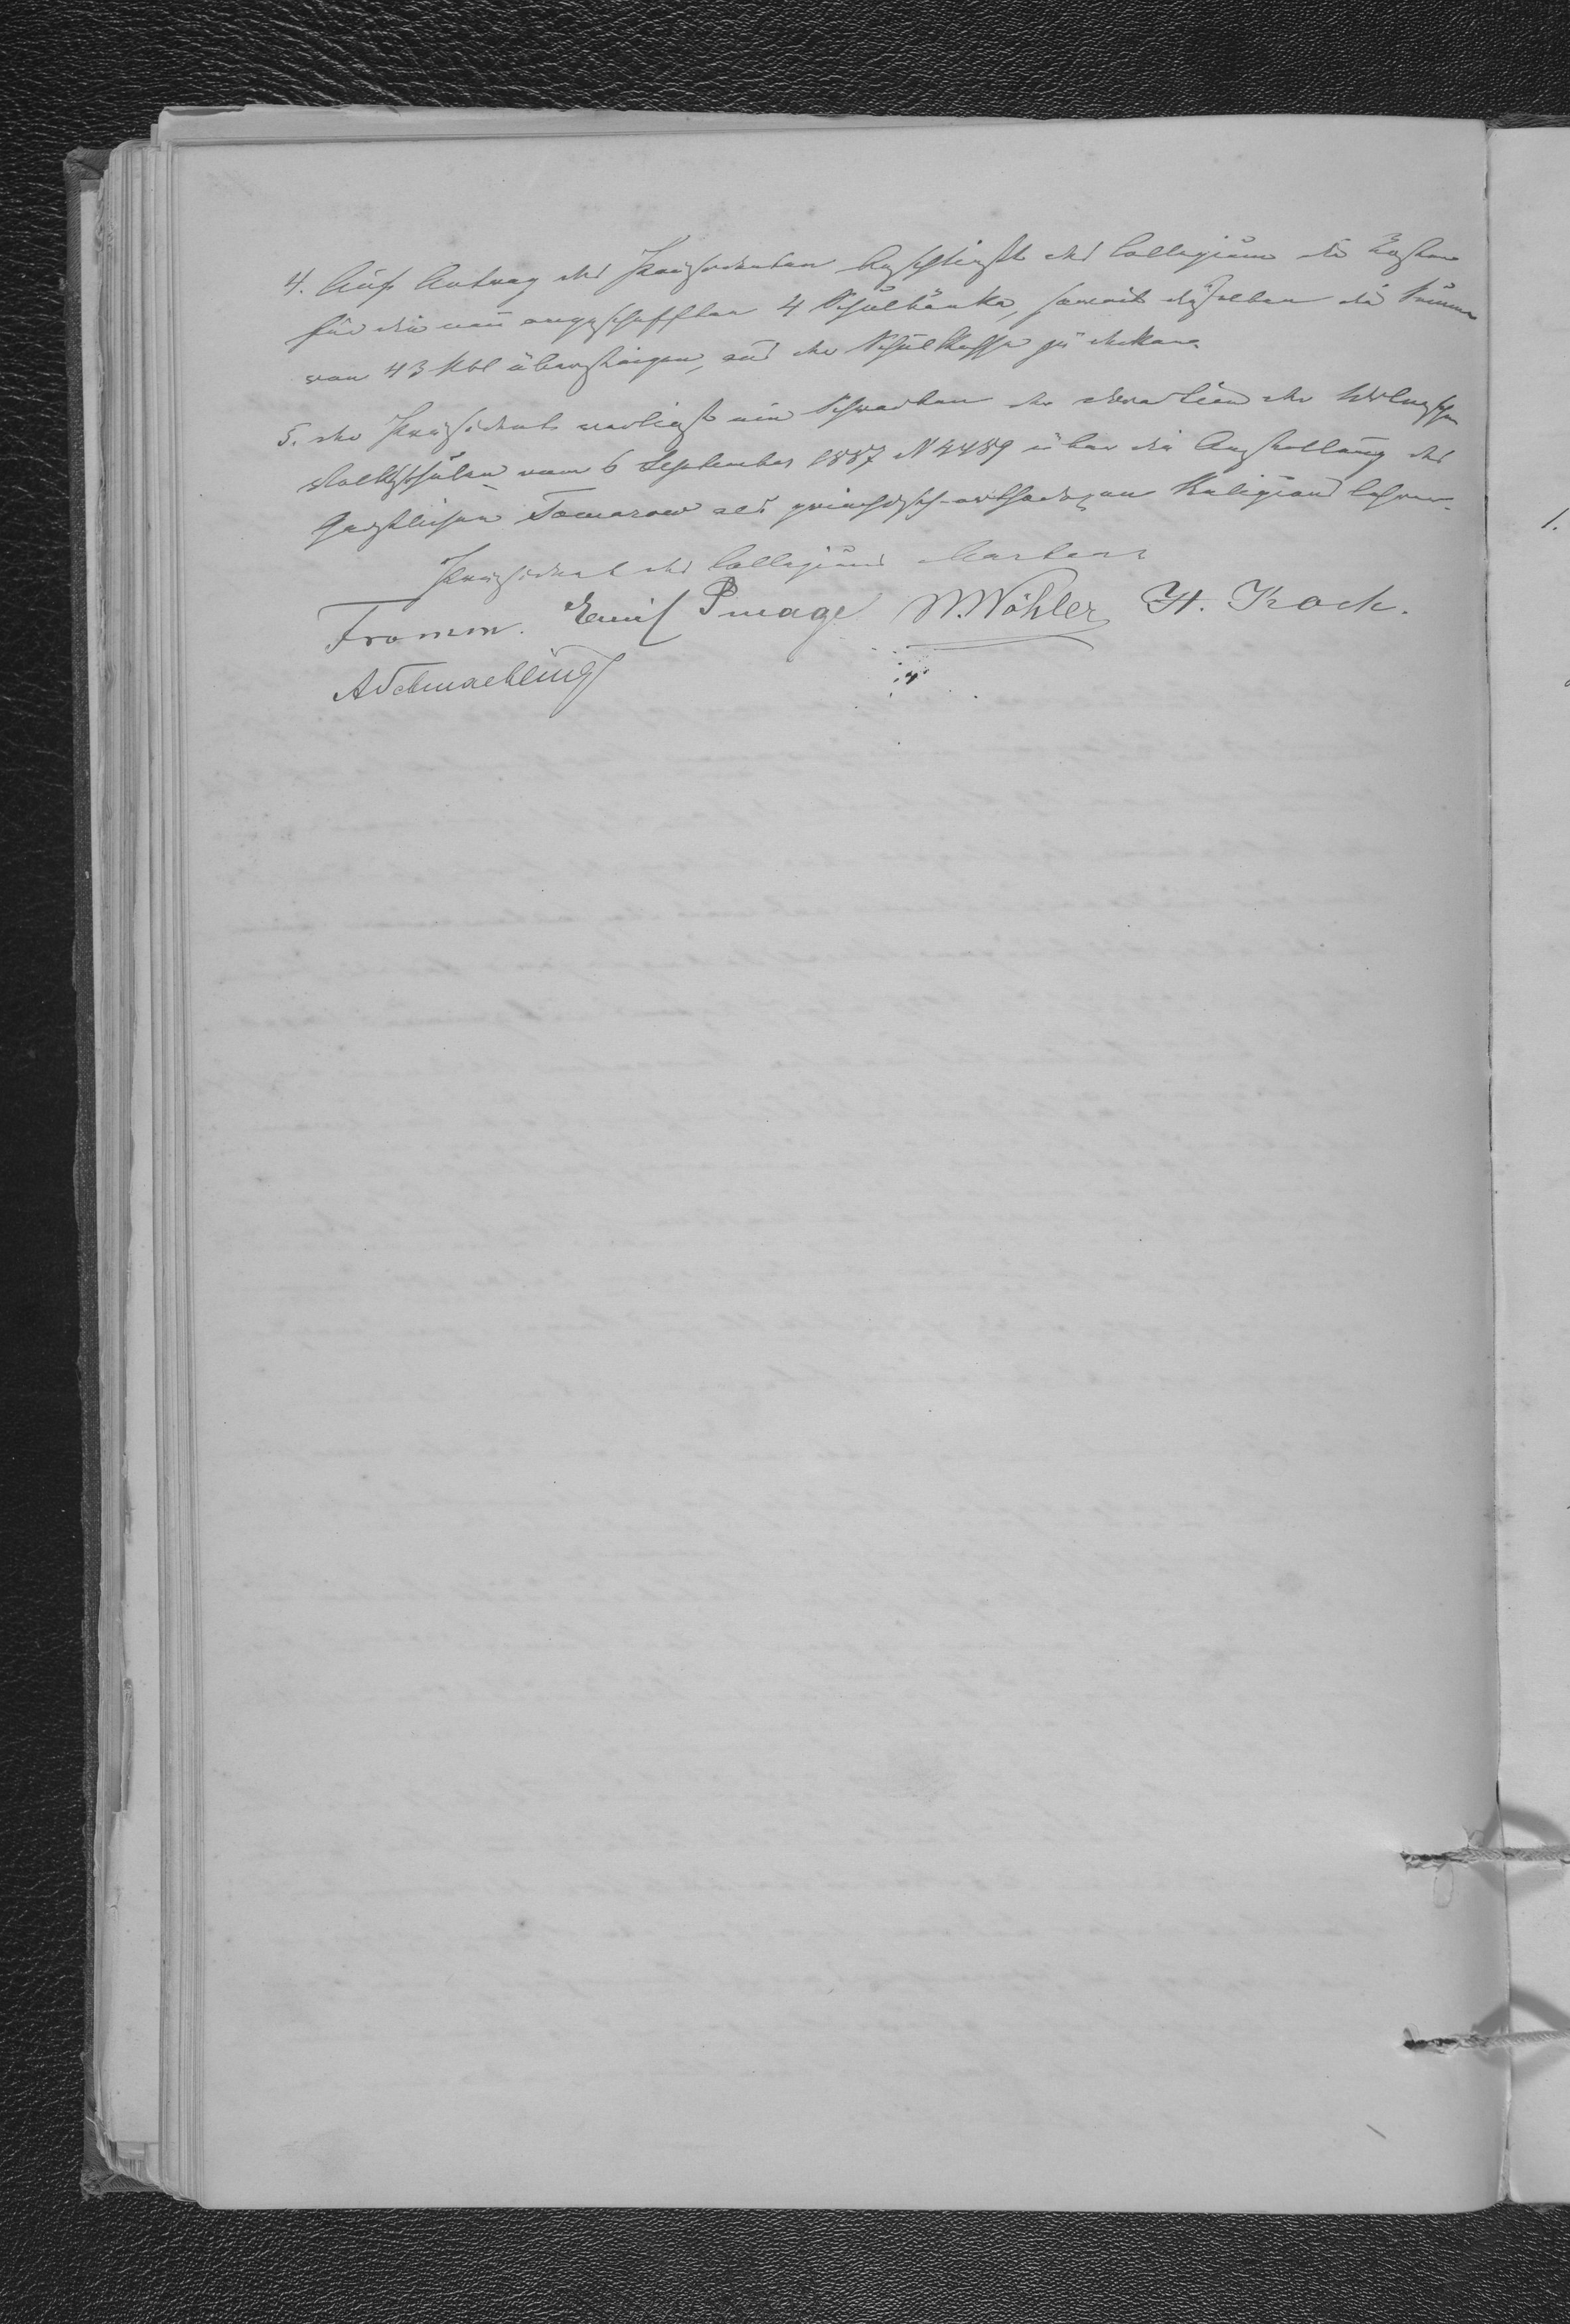 4. Auf Antrag des Präsidenten beschließt das Collegium die Kosten
für die neu angeschafften 4 Schulbänke, soweit dieselben die Summe
von 43 Rbl übersteigen, aus der Schulkasse zu decken.
5. der Präsident verliest ein Schreiben der Direction der
Volksschulen vom 6 September 1887 N 4489 über die Anstellung des
Geistlichen Tomarow als griechisch-orthodoxen Religions lehrer.
Präsident des Collegiums Martens
Fromm. Emil W. Wöhler H. Krock.
A Schmaehling
1.